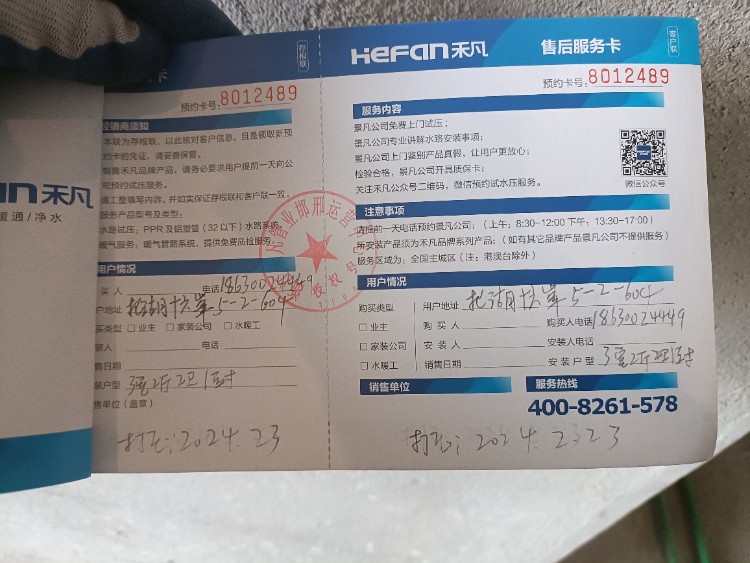 存根联
卡
预约卡号:8012489
经销商须知
本联为存根联,以此核对客户信息,且是领取新预
约卡的凭证,请妥善保管。
销售禾凡品牌产品,请务必要求用户提前一天向公
司预约试压服务。
请工整填写内容,并如实保证存根联和客户联一致。
服务产品型号及类型:
水路试压:PPR 及铝塑管(32 以下)水路系统
暖气服务:暖气管路系统,提供免费品检服务。
用户情况
买 人
电话18630024449
户地址
5-2-604
买类型 □ 业主 □ 家装公司 □ 水暖工
装人
电话
售日期
装户型 3室2厅2卫1厨
售单位(盖章)
打压:2024.23
an禾凡
暖通/净水
HeFan禾凡
售后服务卡
客户联
预约卡号:8012489
服务内容
景凡公司免费上门试压;
景凡公司专业讲解水路安装事项;
景凡公司上门鉴别产品真假,让用户更放心;
检验合格,景凡公司开具质保卡;
关注禾凡公众号二维码,微信预约试水压服务。
微信公众号
注意事项
请提前一天电话预约景凡公司;(上午:8:30-12:00 下午:13:30-17:00)
所安装产品须为禾凡品牌系列产品;(如有其它品牌产品景凡公司不提供服务)
服务区域为:全国主城区(注:港澳台除外)
用户情况
购买类型
用户地址
5-2-604
□ 业主
购 买 人
购买人电话18630024449
□ 家装公司
安 装 人
安装人电话
□ 水暖工
销售日期
安 装 户 型 3室2厅2卫1厨
销售单位
服务热线
400-8261-578
打压:2024.2323
凡管业邯邢运营
授权